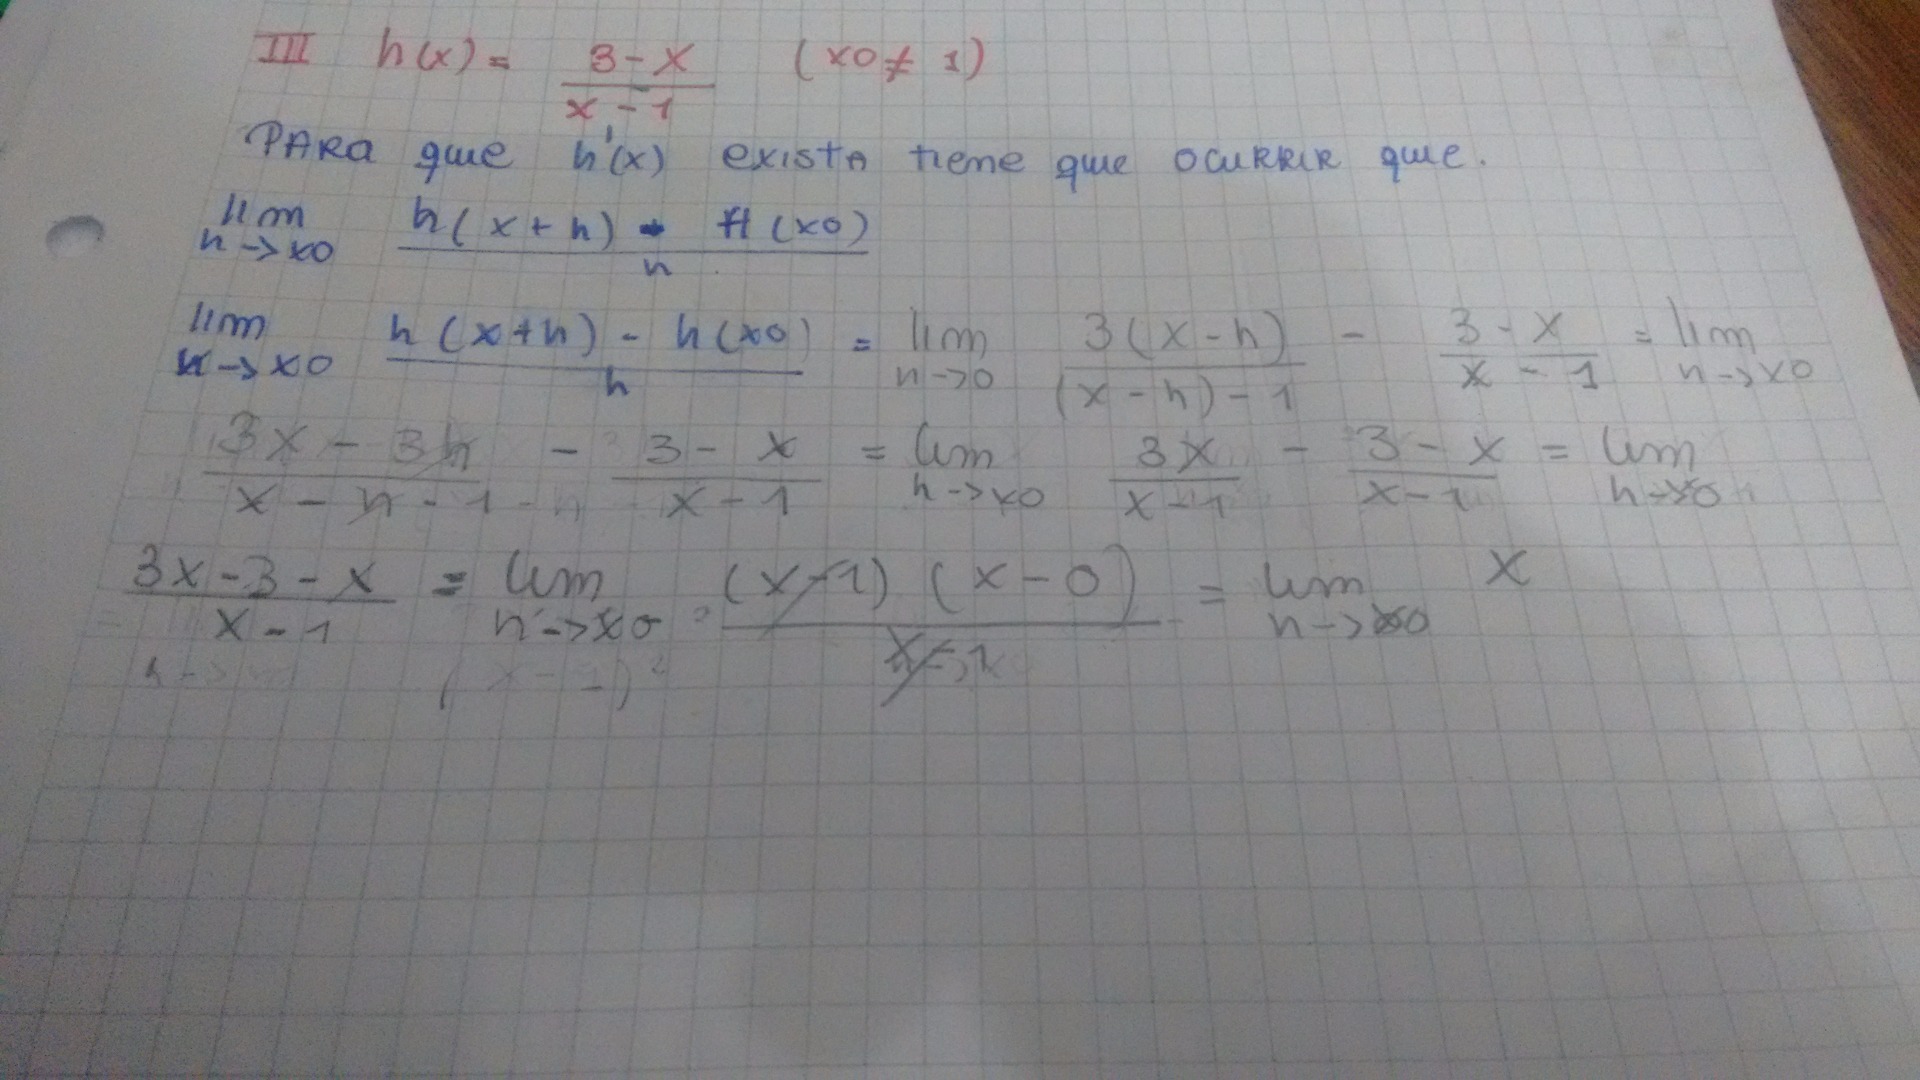 III h(x) = 3-x / x-1 (x0 ≠ 1)
PARA que h'(x) exista tiene que ocurrir que.
lim h→x0 h(x+h) - H(x0) / h
lim h→x0 h(x+h) - h(x0) / h = lim h→0 3(x-h) / (x-h)-1 - 3-x / x-1 = lim h→x0
3x - 3h / x-h-1 - 3-x / x-1 = lim h→x0 3x / x-1 - 3-x / x-1 = lim h→x0
3x-3-x / x-1 = lim h→x0 (x-1)(x-0) / x-1 = lim h→x0 x
(x-1)²